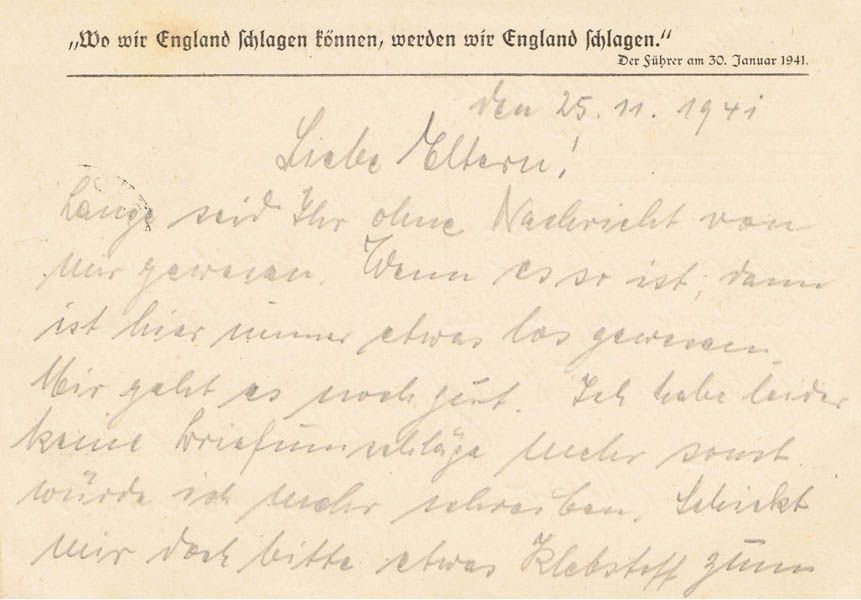 „Wo wir England schlagen können, werden wir England schlagen.“
Der Führer am 30. Januar 1941.
den 25. 11. 1941
Liebe Eltern!
Lange seid Ihr ohne Nachricht von
mir gewesen. Wenn es so ist, dann
ist hier immer etwas los gewesen.
Mir geht es noch gut. Ich habe leider
keine Briefumschläge mehr sonst
würde ich mehr schreiben. Schickt
mir doch bitte etwas Klebstoff zum